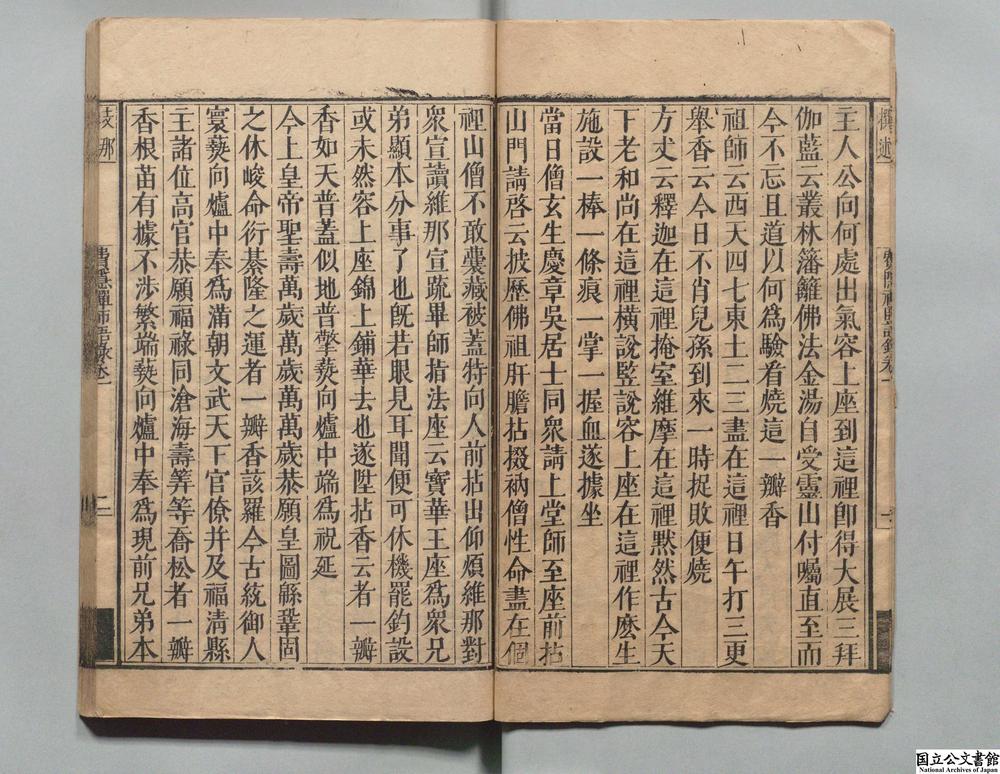 主人公向何處出氣容上座到這裡卽得大展三拜
伽藍云叢林籓籬佛法金湯自受靈山付囑直至而
今不忘且道以何爲驗看燒這一瓣香
祖師云西天四七東土二三盡在這裡日午打三更
舉香云今日不肖兒孫到來一時捉敗便燒
方丈云釋迦在這裡掩室維摩在這裡默然古今天
下老和尚在這裡橫說竪說容上座在這裡作麽生
施設一棒一條痕一掌一握血遂據坐
當日僧玄生慶章吳居士同衆請上堂師至座前拈
山門請啓云披歷佛祖肝膽拈掇衲僧性命盡在個
裡山僧不敢囊藏被蓋特向人前拈出仰煩維那對
衆宣讀維那宣疏畢師指法座云寶華王座爲衆兄
弟顯本分事了也旣若眼見耳聞便可休機罷釣設
或未然容上座錦上鋪華去也遂陞拈香云者一瓣
香如天普蓋似地普擎爇向爐中端爲祝延
今上皇帝聖壽萬歲萬歲萬萬歲恭願皇圖緜鞏固
之休峻命衍綦隆之運者一瓣香該羅今古統御人
寰爇向爐中奉爲滿朝文武天下官僚并及福淸縣
主諸位高官恭願福祿同滄海壽筭等喬松者一瓣
香根苗有據不涉繁端爇向爐中奉爲現前兄弟本
費隱禪師語錄卷一
二
国立公文書館
National Archives of Japan